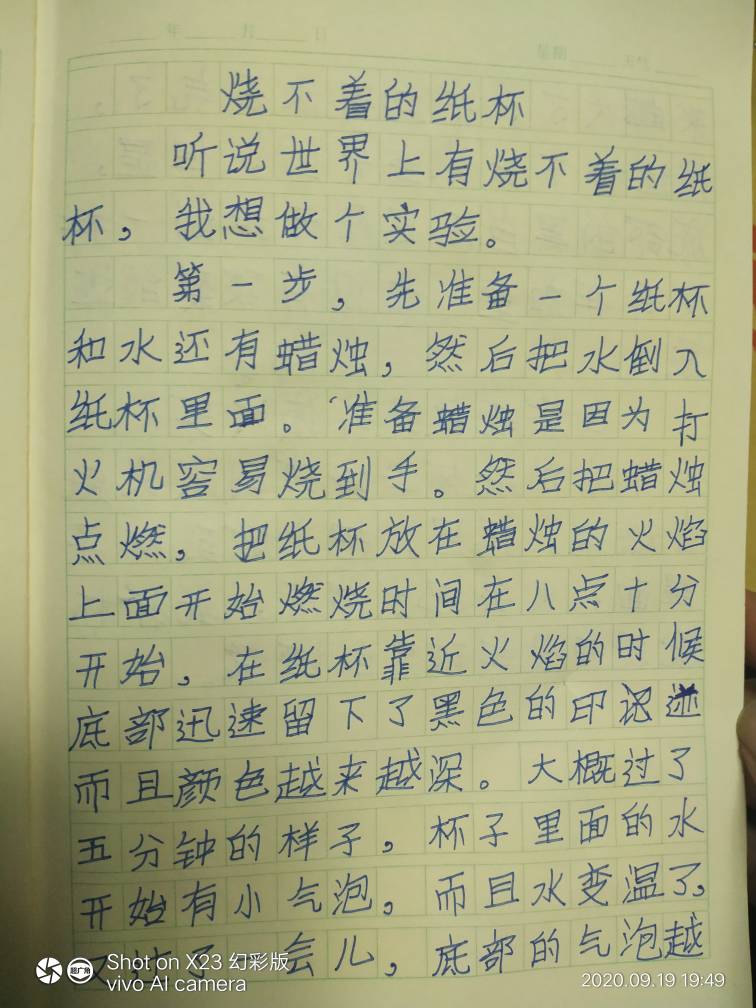 年 月 日 星期 天气
烧不着的纸杯
听说世界上有烧不着的纸
杯，我想做个实验。
第一步，先准备一个纸杯
和水还有蜡烛，然后把水倒入
纸杯里面。准备蜡烛是因为打
火机容易烧到手。然后把蜡烛
点燃，把纸杯放在蜡烛的火焰
上面开始燃烧时间在八点十分
开始，在纸杯靠近火焰的时候
底部迅速留下了黑色的印记
而且颜色越来越深。大概过了
五分钟的样子，杯子里面的水
开始有小气泡，而且水变温了，
又过了一会儿，底部的气泡越
Shot on X23 幻彩版
vivo AI camera
超广角
2020.09.19 19:49